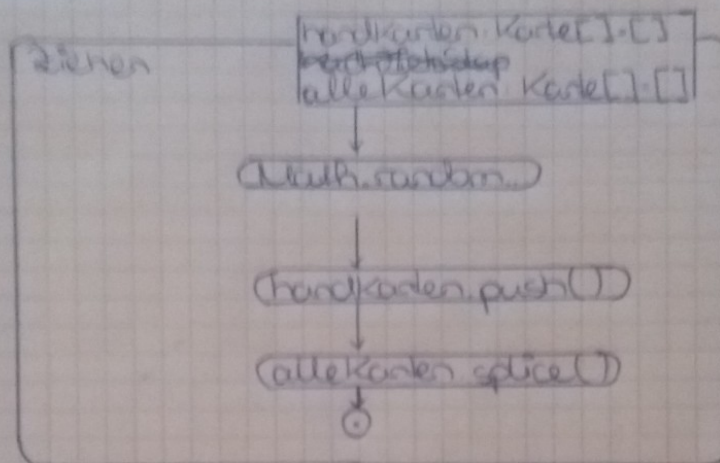 handkarten: Karte[]=[]
ziehen
alleKarten: Karte[]=[]
Math.random
handkarten.push()
alleKarten.splice()